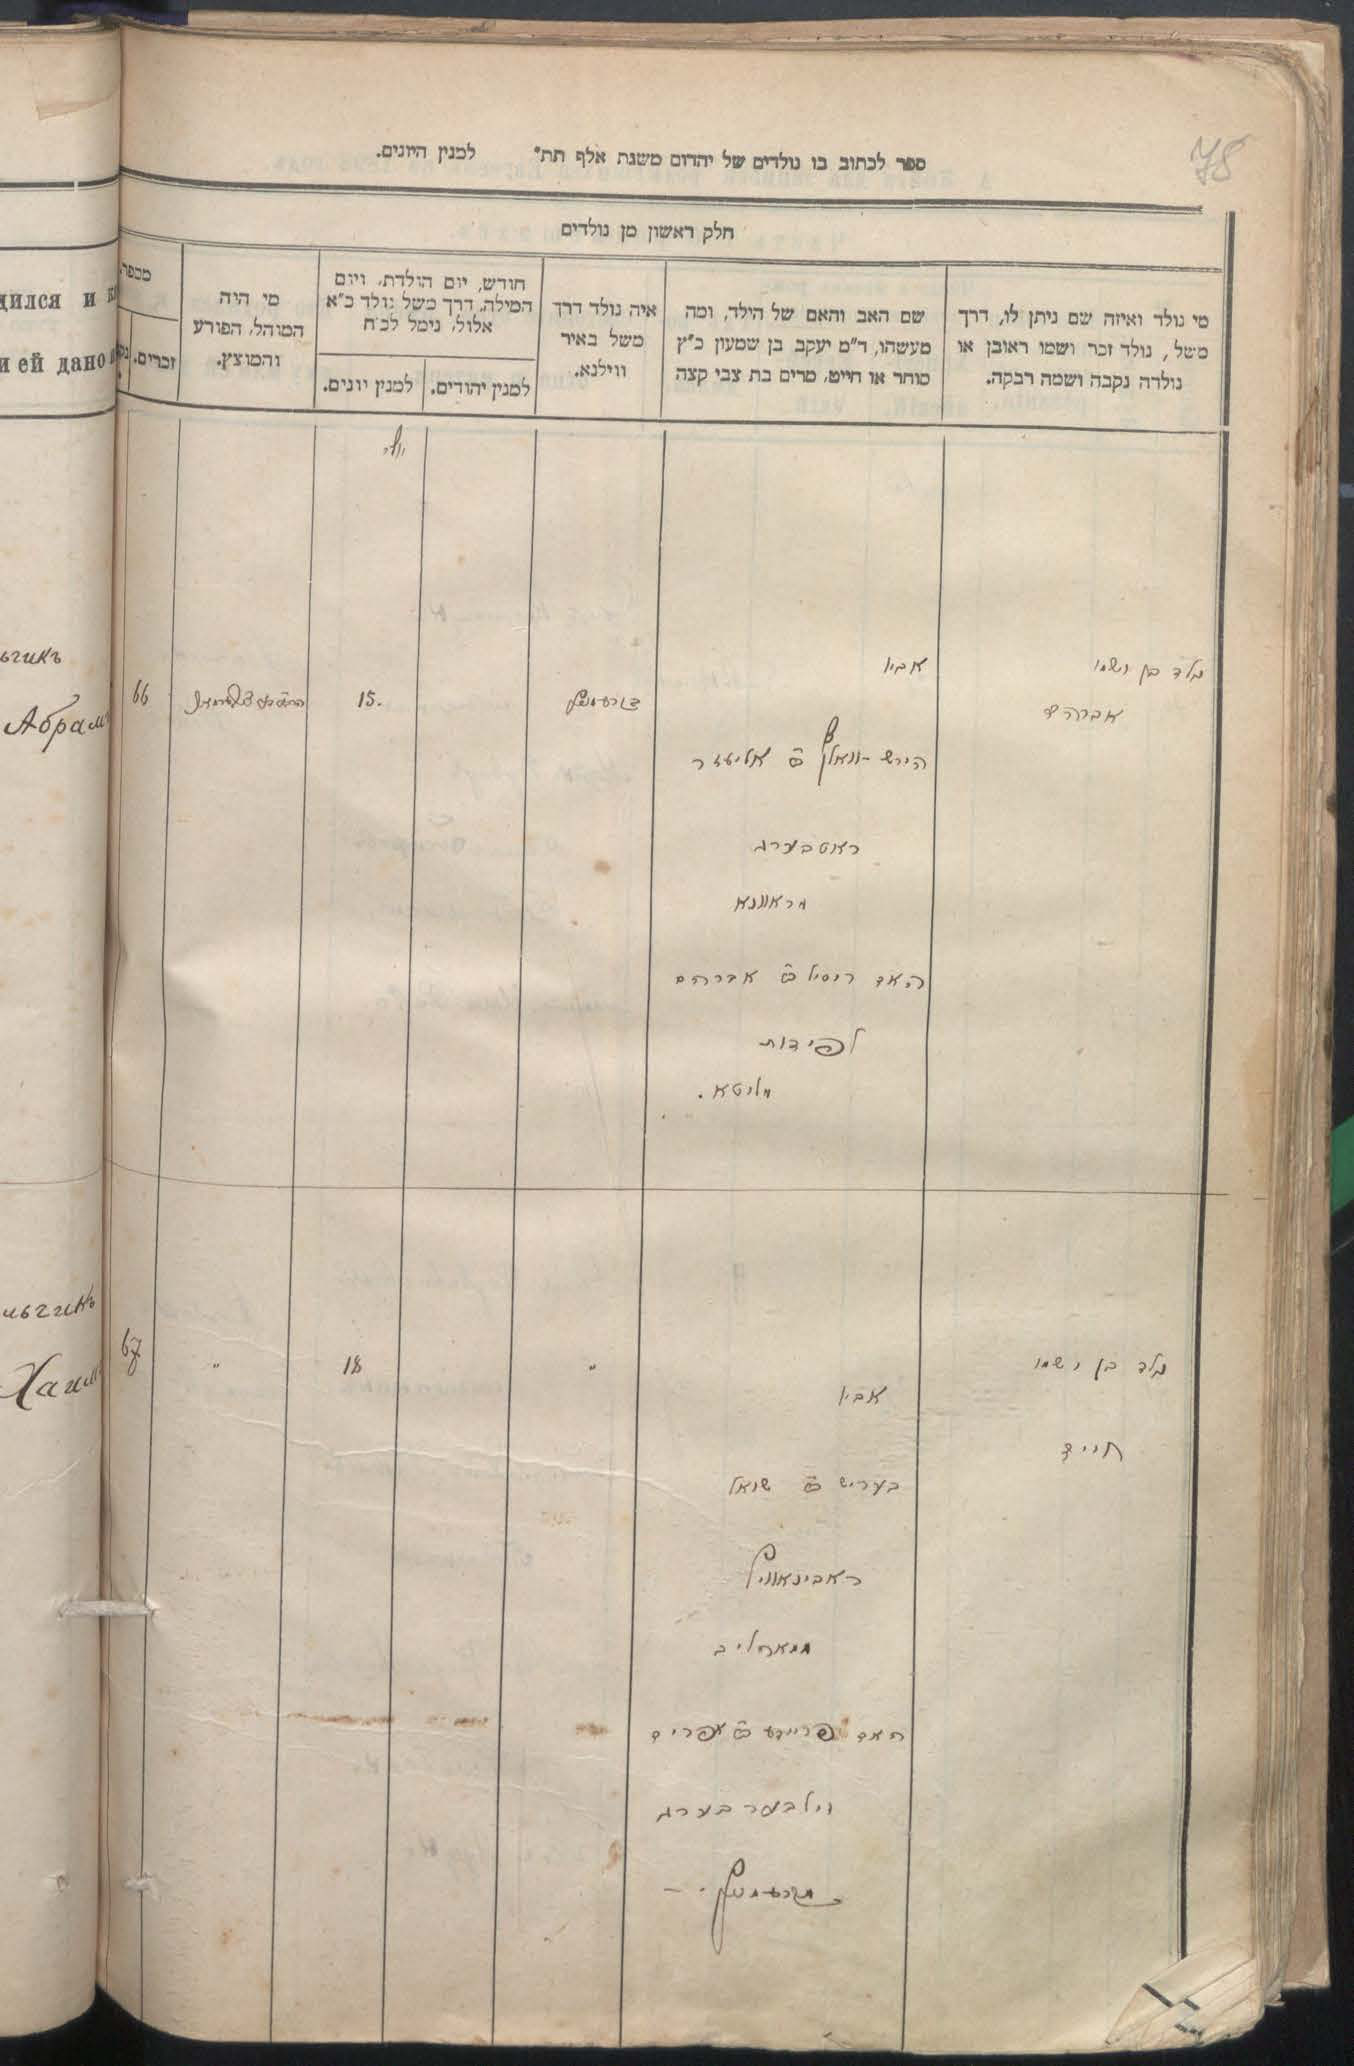 78
ספר לכתוב בו נולדים של יהדום משנת אלף תת״ למנין היונים.
חלק ראשון מן נולדים
מי נולד ואיזה שם ניתן לו, דרך
משל, נולד זכר ושמו ראובן או
נולדה נקבה ושמה רבקה.
שם האב והאם של הילד, ומה
מעשהו, ד״מ יעקב בן שמעון כ״ץ
סוחר או חייט, מרים בת צבי קצה
איה נולד דרך
משל באיר
ווילנא.
חודש, יום הולדת, ויום
המילה, דרך משל נולד כ״א
אלול, נימל לכ״ח
למנין יהודים.
למנין יונים.
מי היה
המוהל, הפורע
והמוצץ.
מספר.
זכרים.
дился и
и ей дано
יולי
נולד בן ושמו
אברהם
אביו
הירש אליעזר
ראטבערג
מראוונא
האם רייסיל אברהם
לפידות
15.
66
ьчикъ
Абрамъ
נולד בן ושמו
חיים
אביו
בעריש שואל
ראבינאוויץ
האם פריידע אפרים
זילבערבערג
"
18
"
67
ьчикъ
Хаимъ